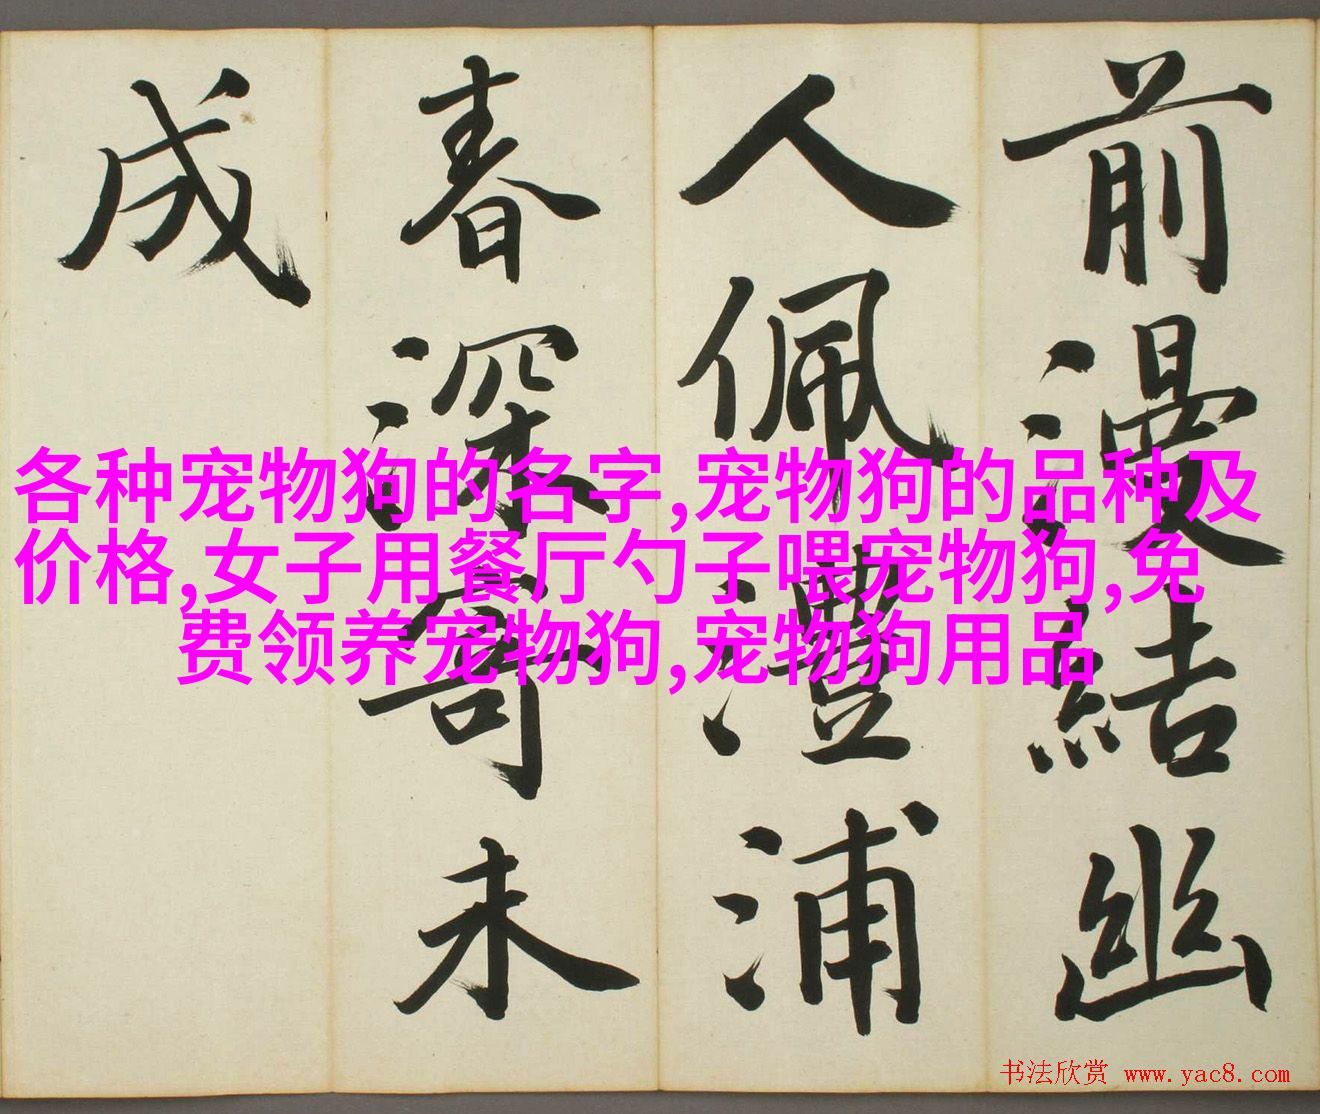 前漫結幽
人佩澧浦
春深寄未
成
各种宠物狗的名字,宠物狗的品种及
价格,女子用餐厅勺子喂宠物狗,免
费领养宠物狗,宠物狗用品
书法欣赏 www.yac8.com